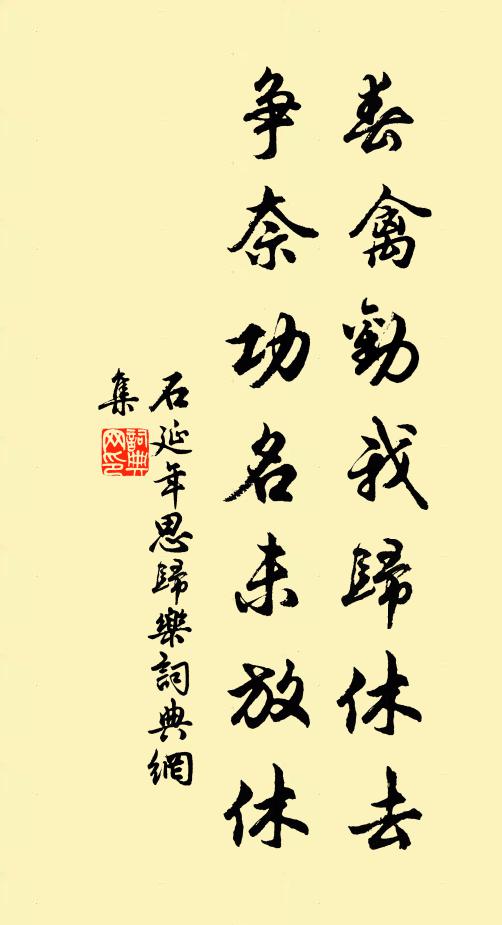 春禽勸我歸休去
爭奈功名未放休
石延年思歸樂詞典網
集
詞典
网印